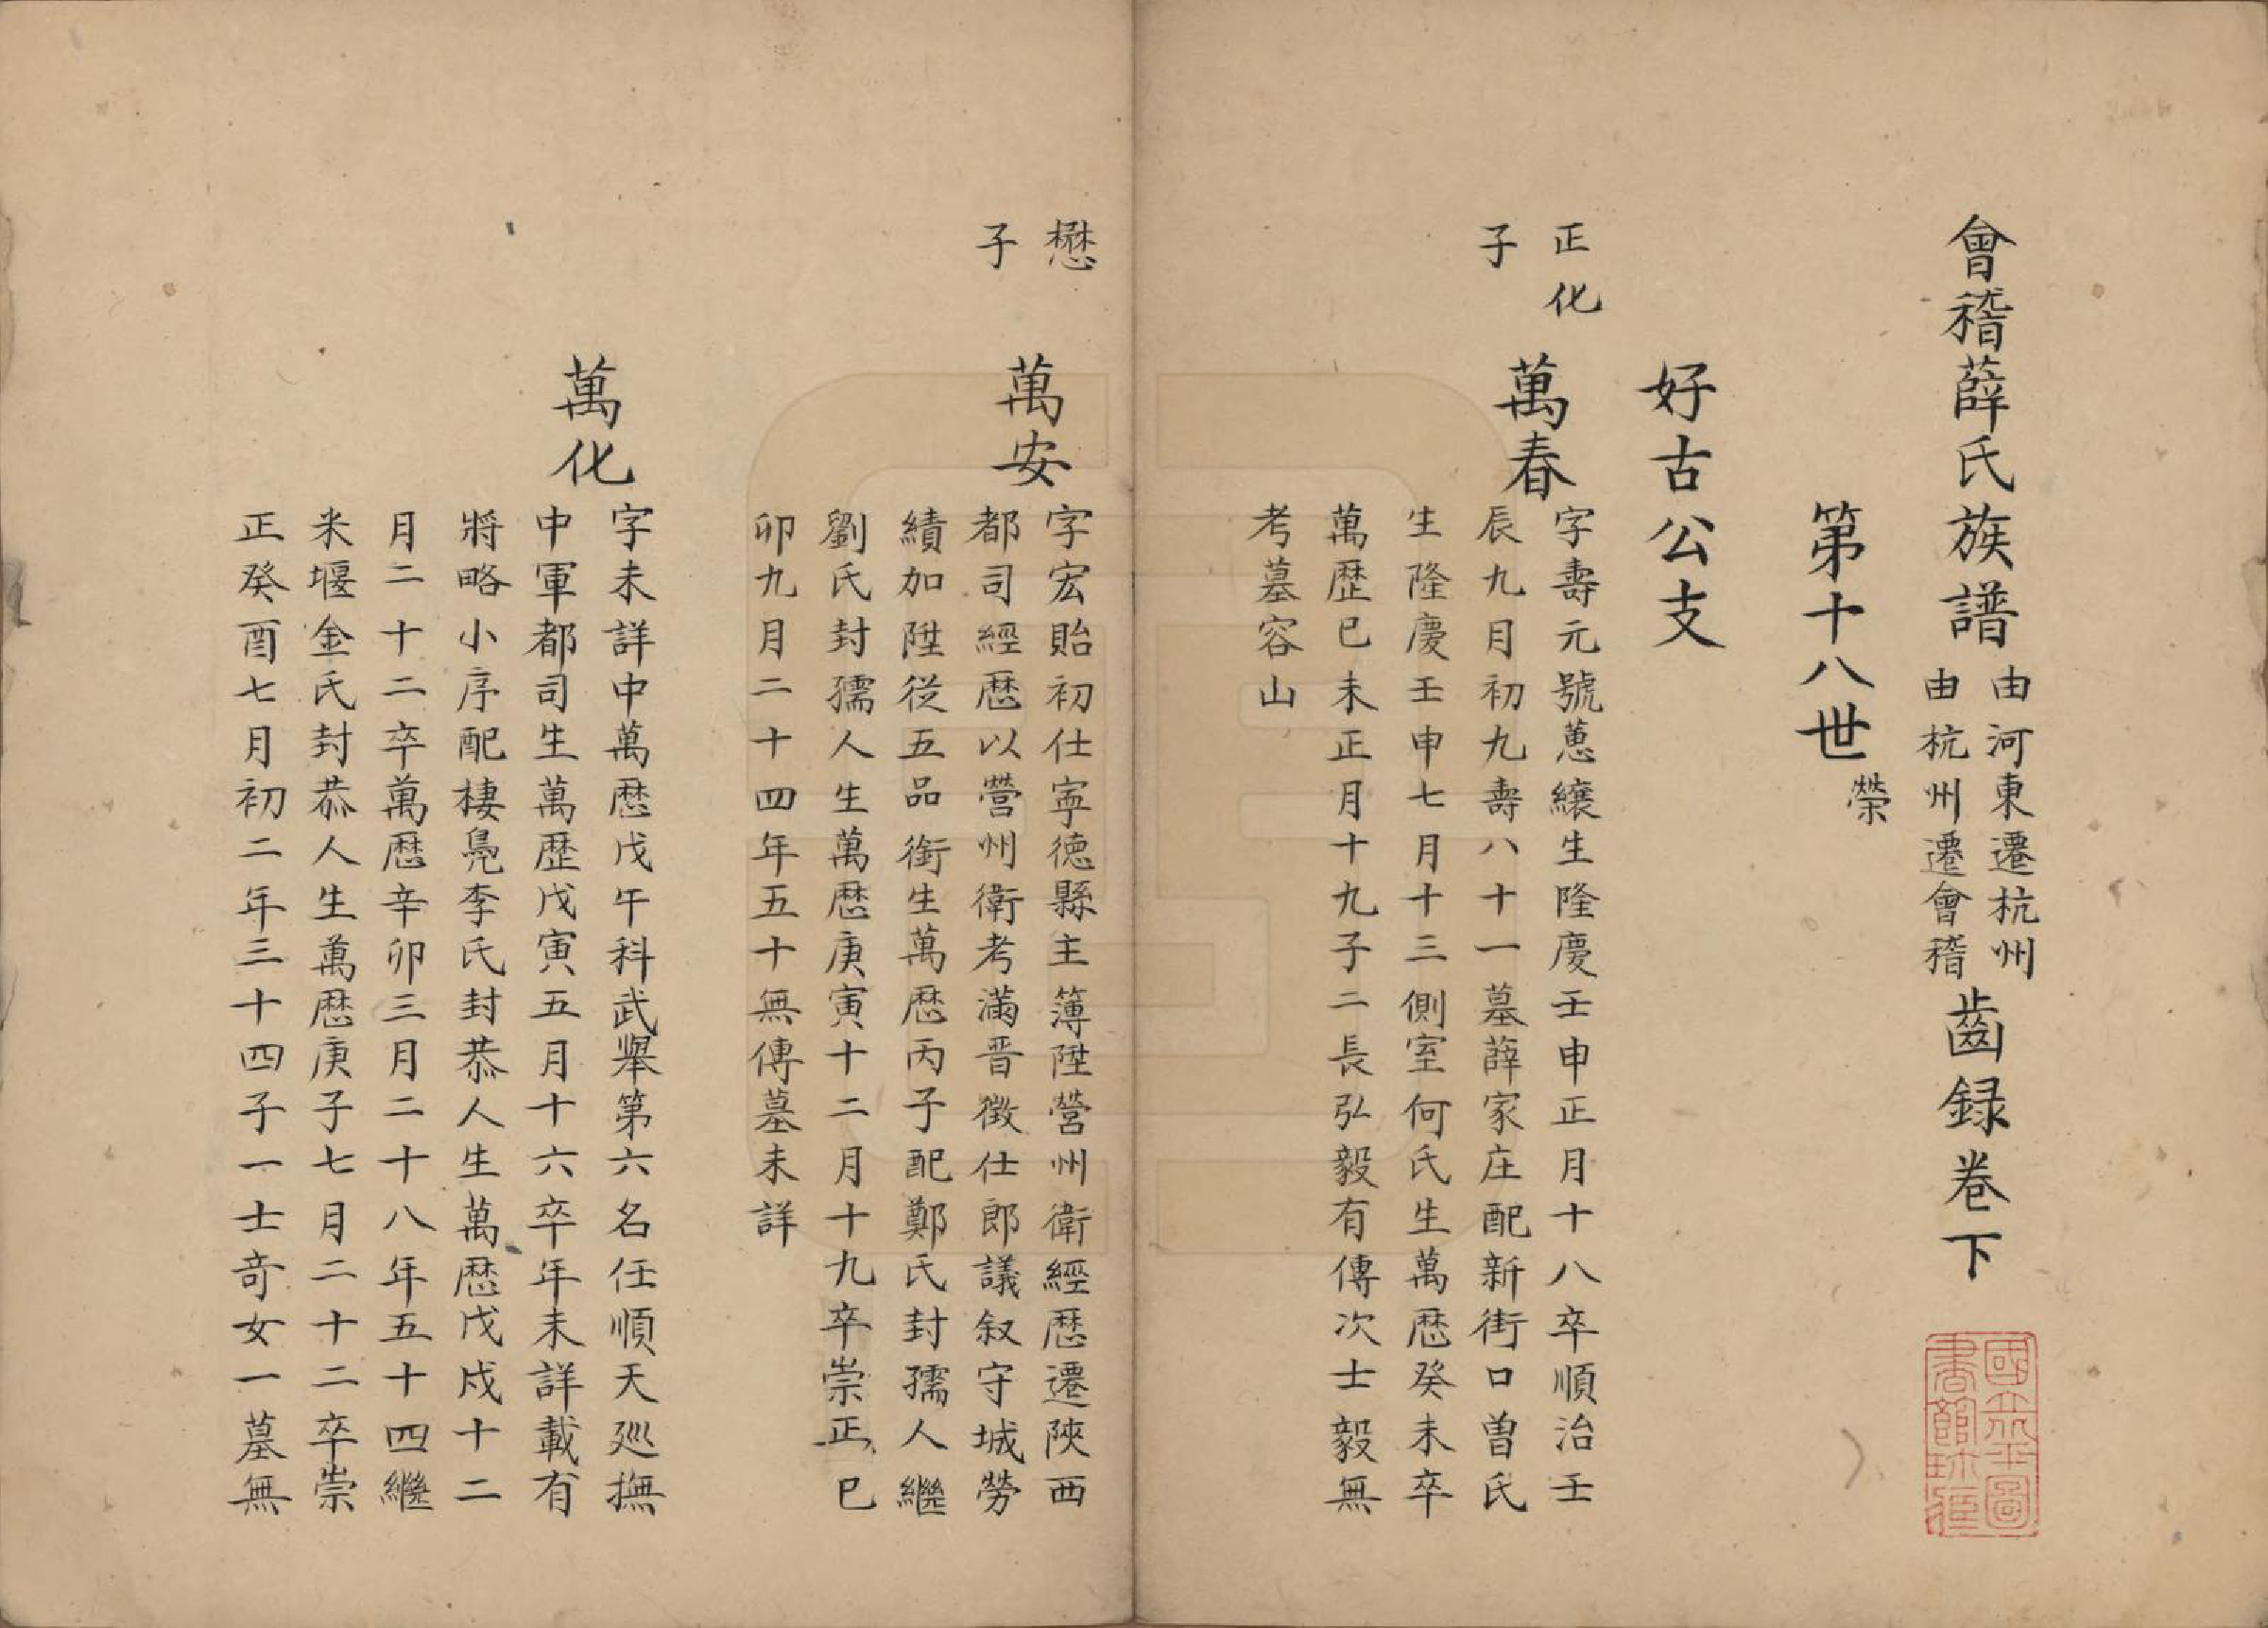 會稽薛氏族譜
由河東遷杭州
由杭州遷會稽
齒録卷下
國立北平圖
書館珍藏
第十八世
榮
好古公支
正化
子
萬春
字壽元號蔥纕生隆慶壬申正月十八卒順治壬
辰九月初九壽八十一墓薛家庄配新街口曾氏
生隆慶壬申七月十三側室何氏生萬厯癸未卒
萬歷已未正月十九子二長弘毅有傳次士毅無
考墓容山
懋
子
萬安
字宏貽初仕寧德縣主簿陞營州衛經厯遷陝西
都司經厯以營州衛考滿晋徵仕郎議叙守城勞
績加陞從五品銜生萬厯丙子配鄭氏封孺人繼
劉氏封孺人生萬厯庚寅十二月十九卒崇正已
卯九月二十四年五十無傳墓未詳
萬化
字未詳中萬厯戊午科武舉第六名任順天廵撫
中軍都司生萬歷戊寅五月十六卒年未詳載有
將略小序配棲鳧李氏封恭人生萬厯戊戍十二
月二十二卒萬厯辛卯三月二十八年五十四繼
米堰金氏封恭人生萬厯庚子七月二十二卒崇
正癸酉七月初二年三十四子一士竒女一墓無